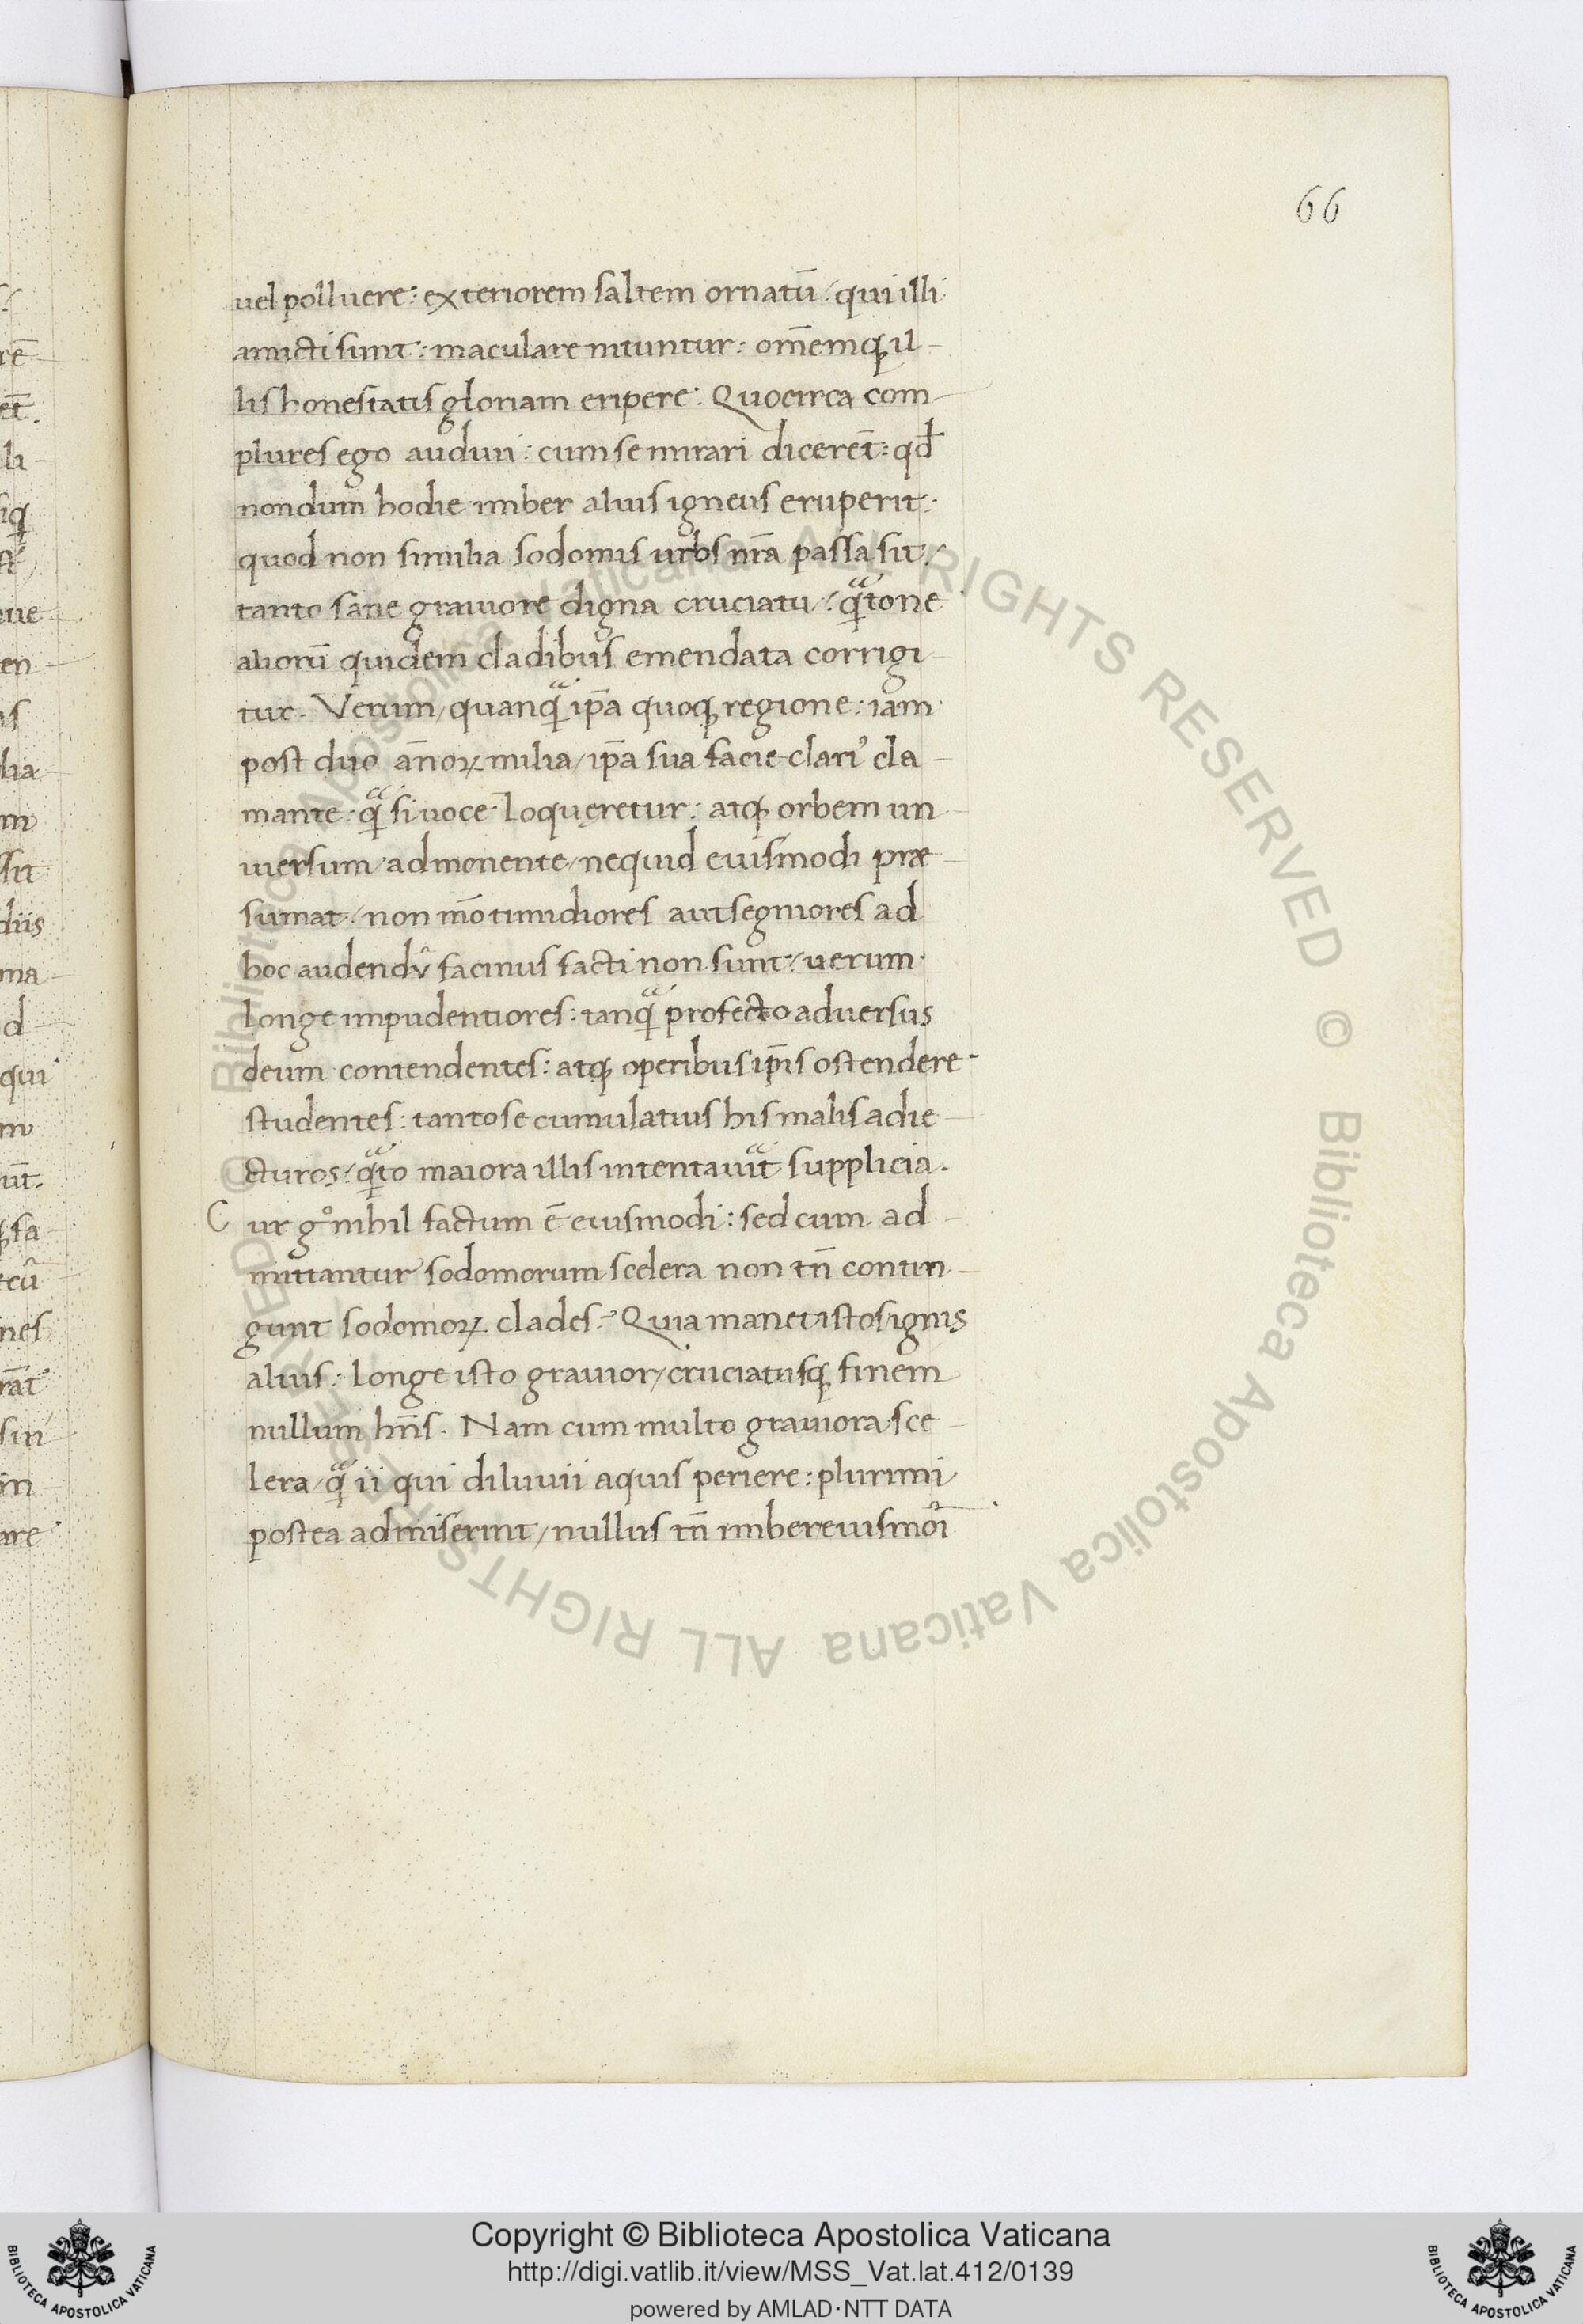 66
uel polluere: exteriorem saltem ornatū/ qui illi
amicti sunt: maculare nituntur: om̄emqꝫ il-
lis honestatis gloriam eripere. Quocirca com-
plures ego audiui: cum se mirari dicerēt: qđ
nondum hodie imber alius igneus eruperit:
quod non similia sodomis urbs nr̄a passa sit/
tanto sane grauiore digna cruciatu/ qͣ̄to ne
aliorū quidem cladibus emendata corrigi-
tur. Verum/ quanqͣ̄ ip̄a quoqꝫ regione: iam
post duo an̄oꝝ milia/ ip̄a sua facie clariꝰ cla-
mante: qͣ̄ si uoce loqueretur: atqꝫ orbem un-
iuersum admonente/ nequid euismodi præ-
sumat/ non mō timidiores aut segniores ad
hoc audendū facinus facti non sunt/ uerum
longe impudentiores: tanqͣ̄ profecto aduersus
deum contendentes: atqꝫ operibus ip̄is ostendere
studentes: tanto se cumulatius his malis adie-
cturos/ qͣ̄to maiora illis intentauit supplicia.
Cur gͦ nihil factum ē eiusmodi: sed cum ad-
mittantur sodomorum scelera non tn̄ contin-
gunt sodomoꝝ clades? Quia manet istos ignis
alius: longe isto grauior/ cruciatusqꝫ finem
nullum hn̄s. Nam cum multo grauiora sce-
lera/ qͣ̄ ii qui diluuii aquis periere: plurimi
postea admiserint/ nullus tn̄ imber euismōi
© Biblioteca Apostolica Vaticana ALL RIGHTS RESERVED © Biblioteca Apostolica Vaticana ALL RIGHTS RESERVED
Copyright © Biblioteca Apostolica Vaticana
http://digi.vatlib.it/view/MSS_Vat.lat.412/0139
powered by AMLAD·NTT DATA
BIBLIOTECA APOSTOLICA VATICANA
BIBLIOTECA APOSTOLICA VATICANA